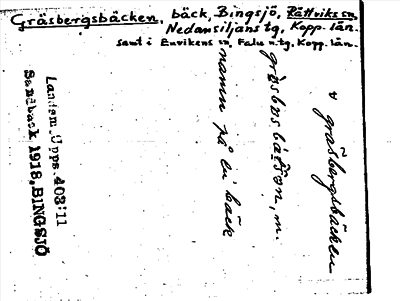 Gräsbergsbäcken, bäck, Bingsjö, Rättviks sn.
Nedansiljans tg, Kopp. län.
samt i Enviken sn, Falu n. tg, Kopp. län.
v gräsbergsbäcken
m.
namn på en bäck
Landsm. Upps. 403:11
Sandback 1918, BINGSJÖ